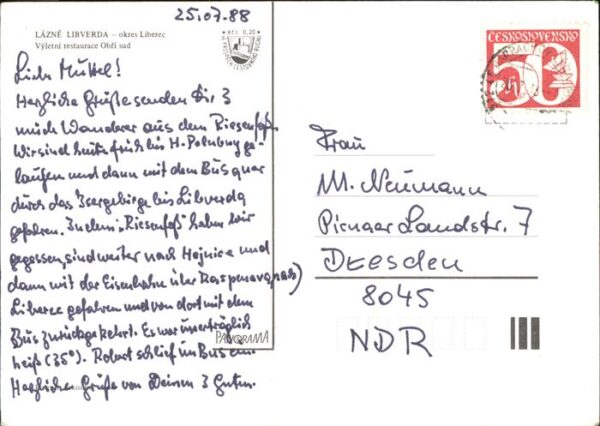 25.07.88
LÁZNĚ LIBVERDA – okres Liberec
Výletní restaurace Obří sud
Kčs 0,20
ČESKOSLOVENSKO
50 h
Liebe Muttel!
Herzliche Grüße senden Dir 3
müde Wanderer aus dem Riesenfaß.
Wir sind heute früh bis H-Polubny ge-
laufen und dann mit dem Bus quer
durch das Isergebirge bis Libverda
gefahren. In dem „Riesenfaß" haben wir
gegessen, sind weiter nach Hejnice und
dann mit der Eisenbahn über Raspenava (nach)
Liberec gefahren und von dort mit dem
Bus zurückgekehrt. Es war unerträglich
heiß (35°). Robert schlief im Bus ein.
Herzliche Grüße von Deinen 3 Guten.
PANORAMA
Frau
M. Neumann
Pirnaer Landstr. 7
Dresden
8045
NDR